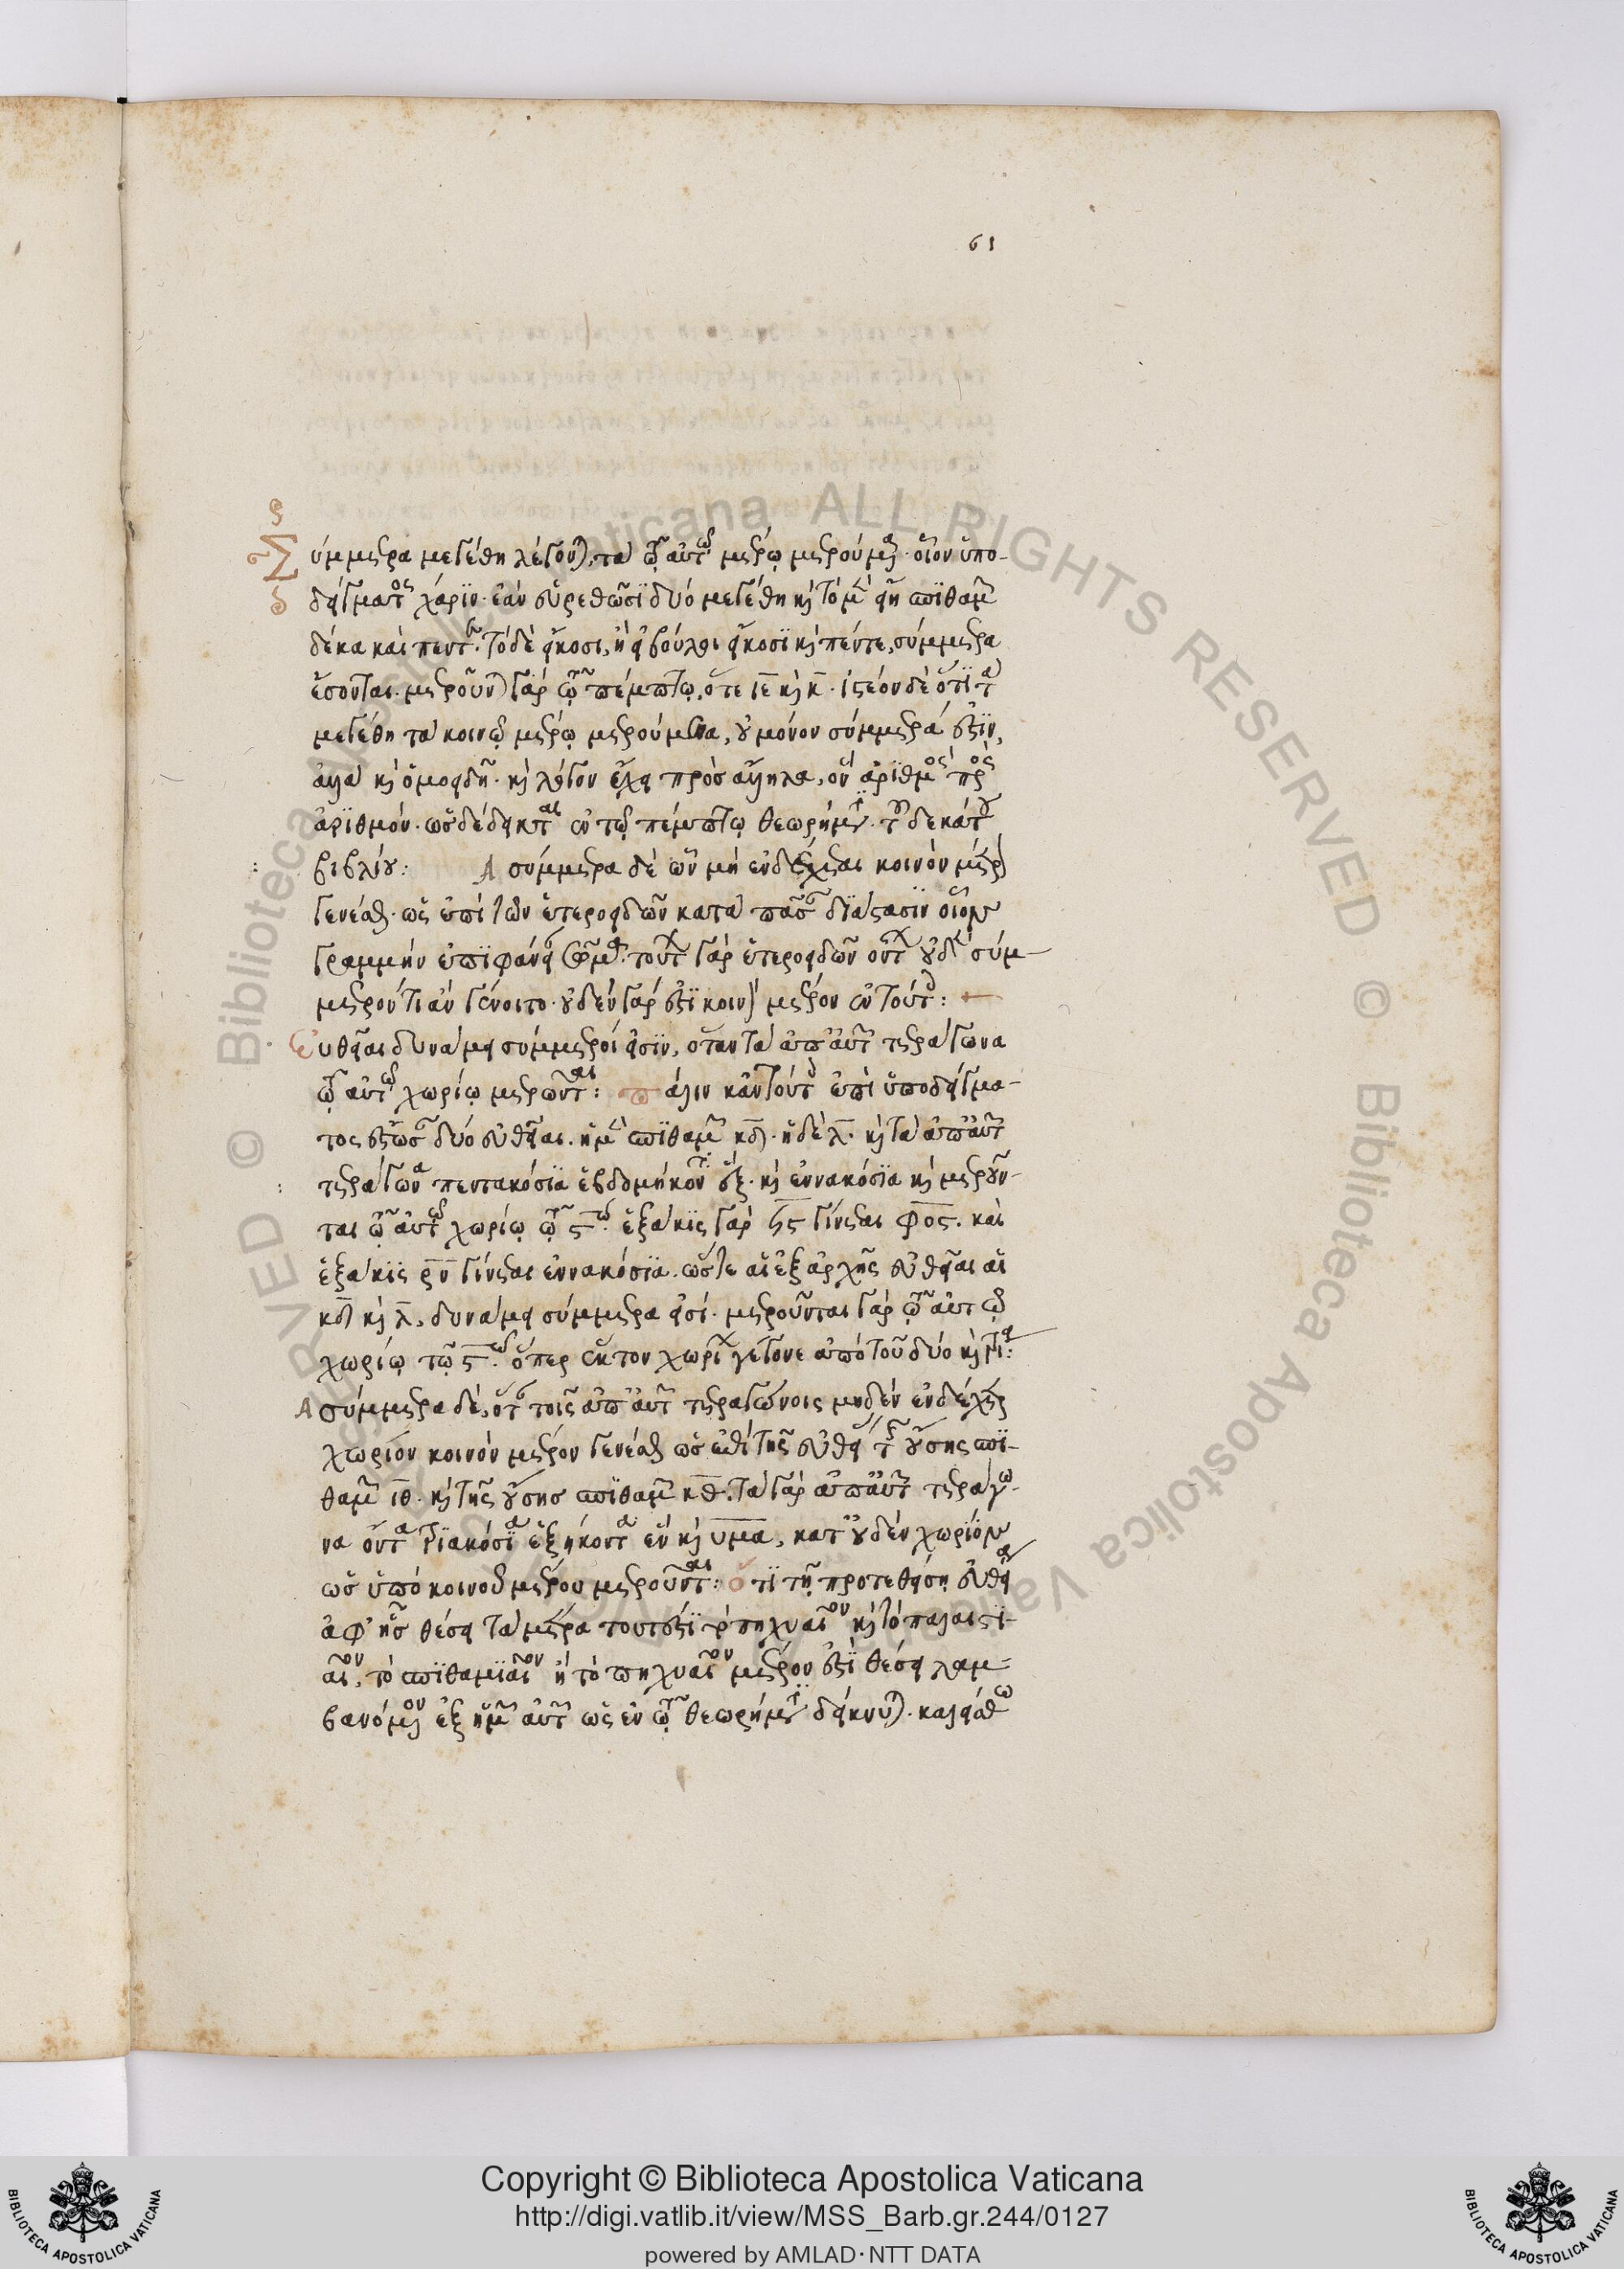 61
Σύμμετρα μεγέθη λέγονται, τὰ τῷ αὐτῷ μέτρῳ μετρούμενα. οἷον ὑπο-
δείγματος χάριν. ἐὰν εὑρεθῶσι δύο μεγέθη καὶ τὸ μὲν εἴη σπιθαμῶν
δέκα καὶ πέντε. τὸ δὲ εἴκοσι, ἢ εἰ βούλει εἴκοσι καὶ πέντε, σύμμετρα
ἔσονται. μετροῦνται γὰρ τῷ πέμπτῳ, ὅ τε ιε καὶ κ. ἰστέον δὲ ὅτι τὰ
μεγέθη τὰ κοινῷ μέτρῳ μετρούμενα, οὐ μόνον σύμμετρά ἐστιν,
ἀλλὰ καὶ ὁμοειδῆ. καὶ λόγον ἔχει πρὸς ἄλληλα, ὃν ἀριθμὸς πρὸς
ἀριθμόν. ὡς δέδεικται ἐν τῷ πέμπτῳ θεωρήματι τοῦ δεκάτου
βιβλίου: Ἀσύμμετρα δὲ ὧν μὴ ἐνδέχεται κοινὸν μέτρον
γενέσθαι. ὡς ἐπὶ τῶν ἑτεροειδῶν κατὰ πᾶσαν διάστασιν οἷον
γραμμὴν ἐπιφάνειαν σῶμα. ταῦτα γὰρ ἑτεροειδῶν ὄντα οὐδὲ σύμ-
μετρόν τι ἂν γένοιτο. οὐδὲν γάρ ἐστι κοινὸν μέτρον ἐν τούτοις:
Εὐθεῖαι δυνάμει σύμμετροί εἰσιν, ὅταν τὰ ἀπ' αὐτῶν τετράγωνα
τῷ αὐτῷ χωρίῳ μετρῶνται: πάλιν κἂν τούτοις ἐπὶ ὑποδείγμα-
τος ἔστωσαν δύο εὐθεῖαι. ἡ μὲν σπιθαμῶν κδ. ἡ δὲ λ. καὶ τὰ ἀπ' αὐτῶν
τετράγωνα πεντακόσια ἑβδομήκοντα ἕξ. καὶ ἐννακόσια καὶ μετροῦν-
ται τῷ αὐτῷ χωρίῳ τῷ ϛῳ. ἑξάκις γὰρ Ϟϛ γίνεται φος. καὶ
ἑξάκις ρν γίνεται ἐννακόσια. ὥστε αἱ ἐξ ἀρχῆς εὐθεῖαι αἱ
κδ καὶ λ, δυνάμει σύμμετρα εἰσί. μετροῦνται γὰρ τῷ αὐτῷ
χωρίῳ τῷ ϛῳ. ὅπερ ἕκτον χωρίον γέγονε ἀπὸ τοῦ δύο καὶ τρία:
Ἀσύμμετρα δὲ, ὅταν τοῖς ἀπ' αὐτῶν τετραγώνοις μηδὲν ἐνδέχηται
χωρίον κοινὸν μέτρον γενέσθαι ὡς ἐπὶ τῆς εὐθείας τῆς οὔσης σπι-
θαμῶν ιθ. καὶ τῆς οὔσης σπιθαμῶν κθ. τὰ γὰρ ἀπ' αὐτῶν τετράγω-
να ὄντα τριακόσια ἑξήκοντα ἓν καὶ υμα, κατ' οὐδὲν χωρίον
ὡς ὑπὸ κοινοῦ μέτρου μετροῦνται: ὅτι τῇ προτεθείσῃ εὐθείᾳ
ἀφ' ἧς θέσει τὰ μέτρα τουτέστι τὸ πηχυαῖον καὶ τὸ παλαιστι-
αῖον, τὸ σπιθαμιαῖον ἢ τὸ πηχυαῖον μέτρον ἐστὶ θέσει λαμ-
βανόμενον ἐξ ἡμῶν αὐτῶν ὡς ἐν τῷ θεωρήματι δείκνυται. καλείσθω
Copyright © Biblioteca Apostolica Vaticana
http://digi.vatlib.it/view/MSS_Barb.gr.244/0127
powered by AMLAD·NTT DATA